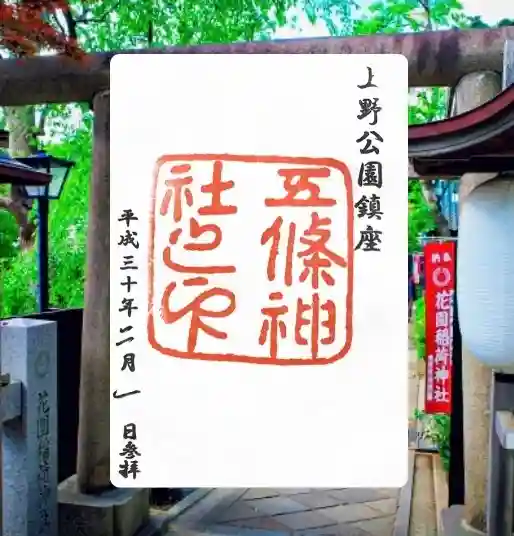 上野公園鎮座
五條神
社之印
平成三十年二月一日参拝
花園稲荷神社
花園稲荷神社